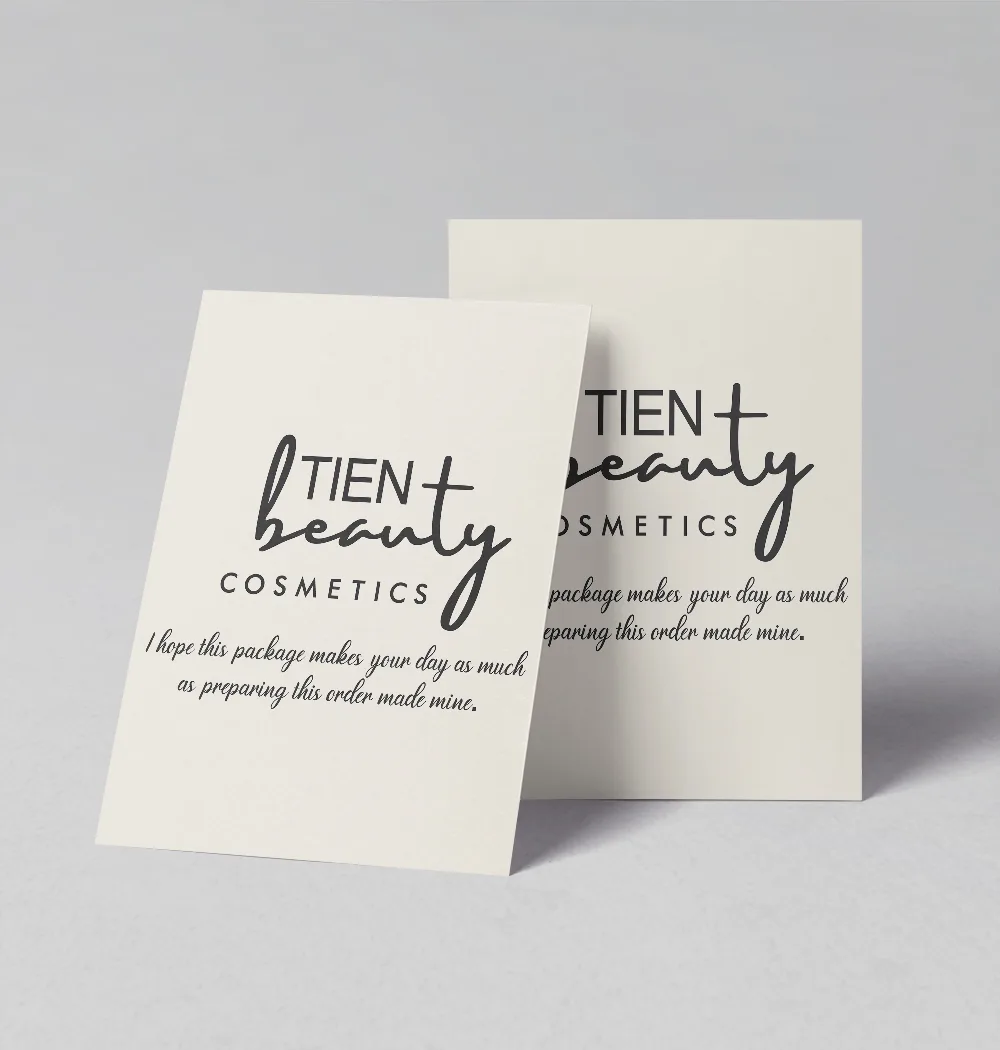 TIEN
beauty
COSMETICS
I hope this package makes your day as much
as preparing this order made mine.
TIEN
beauty
COSMETICS
package makes your day as much
this order made mine.